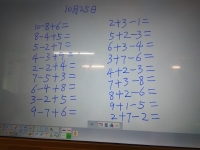 10月25日
10-8+6=
8-4+5=
5-2+7=
4-3+7=
2-2+4=
7-5+3=
6-4+8=
3-2+5=
9-7+6=
2+3-1=
5+2-3=
6+3-4=
3+7-6=
4+2-3=
7+3-8=
8+2-6=
9+1-5=
2+7-2=